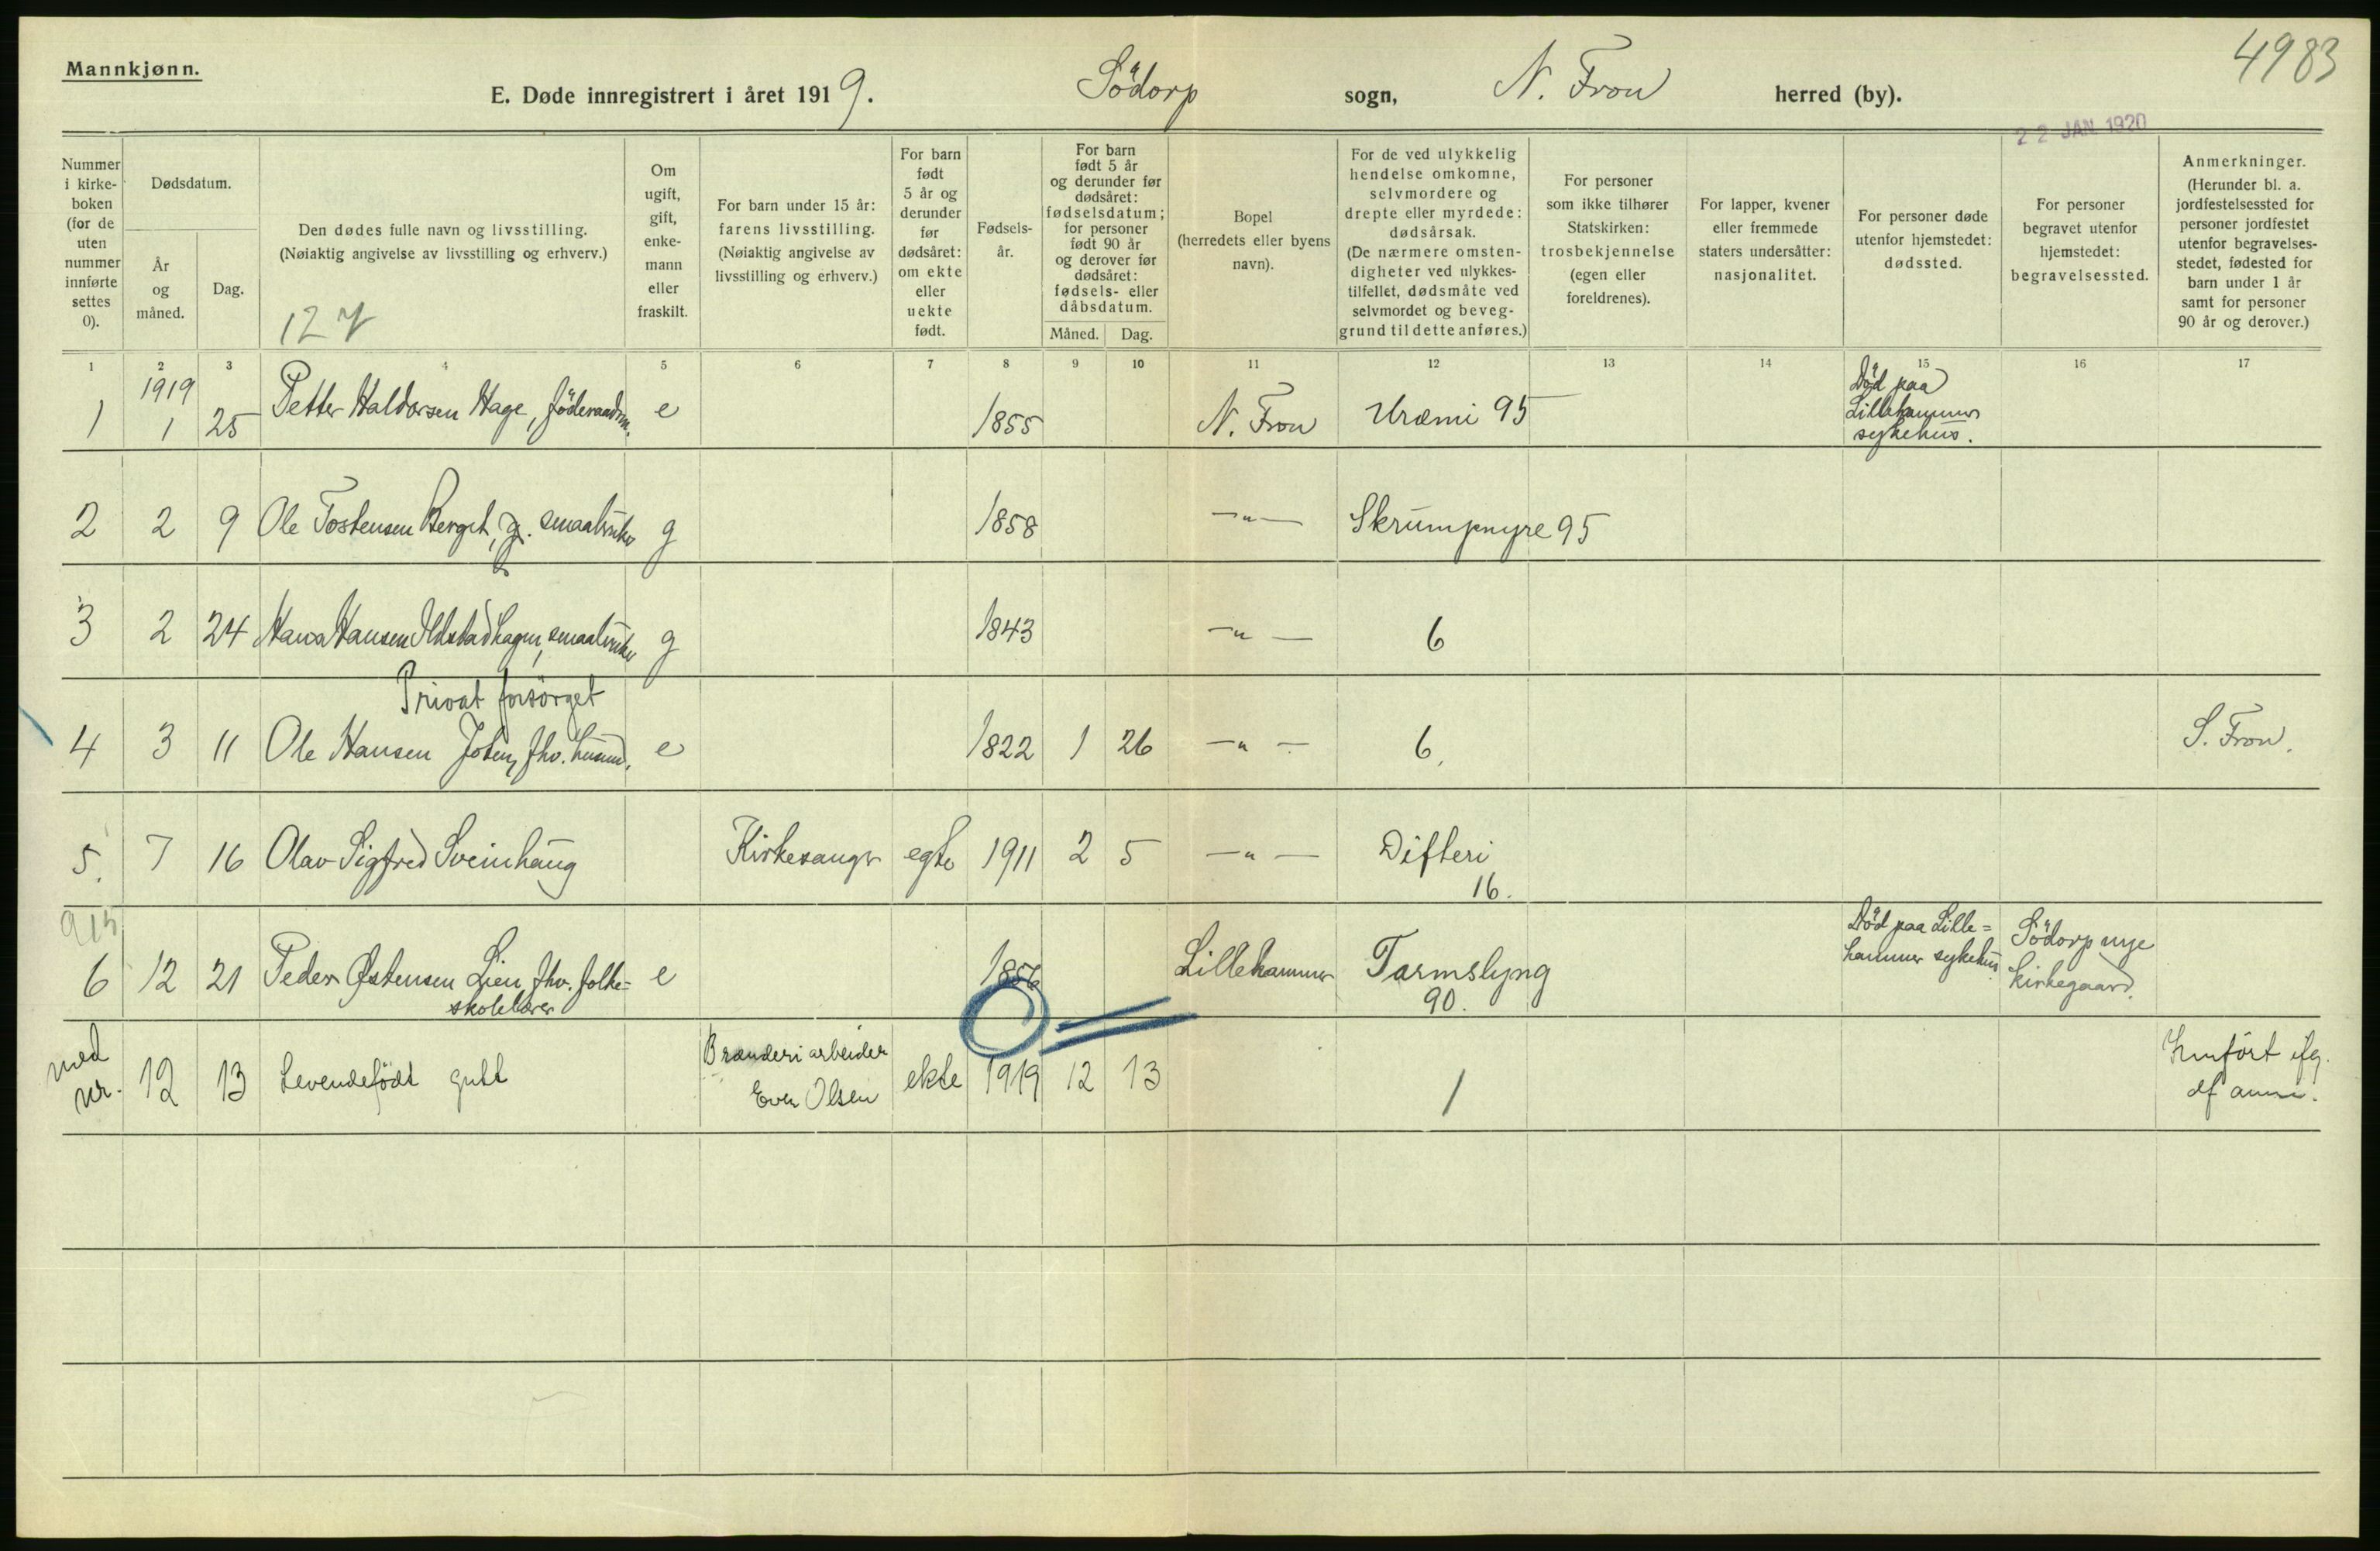 4983
Mannkjønn.
E. Døde innregistrert i året 1919. Södorp sogn, N. Fron herred (by).
22 JAN. 1920
Nummer i kirkeboken (for de uten nummer innførte settes 0).
Dødsdatum.
År og måned.
Dag.
Den dødes fulle navn og livsstilling.
(Nøiaktig angivelse av livsstilling og erhverv.)
127
Om ugift, gift, enkemann eller fraskilt.
For barn under 15 år: farens livsstilling.
(Nøiaktig angivelse av livsstilling og erhverv.)
For barn født 5 år og derunder før dødsåret: om ekte eller uekte født.
Fødsels-år.
For barn født 5 år og derunder før dødsåret: fødselsdatum; for personer født 90 år og derover før dødsåret: fødsels- eller dåbsdatum.
Måned. Dag.
Bopel (herredets eller byens navn).
For de ved ulykkelig hendelse omkomne, selvmordere og drepte eller myrdede: dødsårsak.
(De nærmere omstendigheter ved ulykkestilfellet, dødsmåte ved selvmordet og beveggrund til dette anføres.)
For personer som ikke tilhører Statskirken: trosbekjennelse (egen eller foreldrenes).
For lapper, kvener eller fremmede staters undersåtter: nasjonalitet.
For personer døde utenfor hjemstedet: dødssted.
For personer begravet utenfor hjemstedet: begravelsessted.
Anmerkninger.
(Herunder bl. a. jordfestelsessted for personer jordfestet utenfor begravelsesstedet, fødested for barn under 1 år samt for personer 90 år og derover.)
1 2 3 4 5 6 7 8 9 10 11 12 13 14 15 16 17
1919
1 1 25 Petter Haldorsen Hage, föderaadm. e 1855 N. Fron Uræmi 95 Död paa Lillehammer sykehus.
2 2 9 Ole Tostensen Berget, g. smaabruker g 1858 —"— Skrumpnyre 95
3 2 24 Hans Hansen smaabruker g 1843 —"— 6
Privat forsörget
4 3 11 Ole Hansen fhv. husmd. e 1822 1 26 —"— 6. S. Fron.
5. 7 16 Olav Sigfred Sveinhaug Kirkesanger egte 1911 2 5 —"— Difteri 16.
915
6 12 21 Peder Østensen Lien, fhv. folke=skolelærer e 1856 Lillehammer Tarmslyng 90. Död paa Lille=hammer sykehus Södorp nye kirkegaard.
12 13 Levendefödt gutt Brænderiarbeider Even Olsen ekte 1919 12 13 1 Innfört ifg.